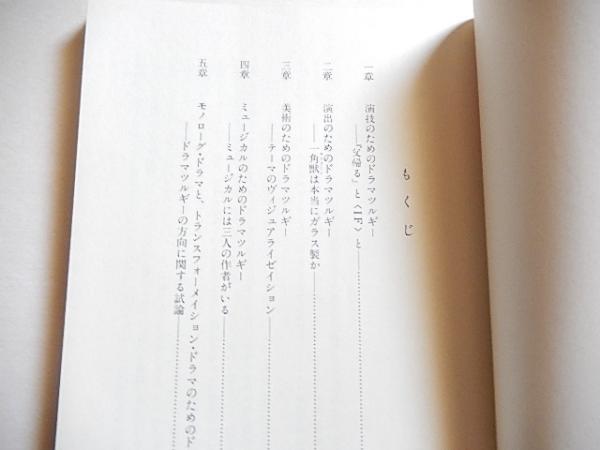 もくじ
一章 演技のためのドラマツルギー
――『父帰る』と〈IF〉と
二章 演出のためのドラマツルギー
――一角獣は本当にガラス製か
三章 美術のためのドラマツルギー
――テーマのヴィジュアライゼイション
四章 ミュージカルのためのドラマツルギー
――ミュージカルには三人の作者がいる
五章 モノローグ・ドラマと、トランスフォーメイション・ドラマのためのド
――ドラマツルギーの方向に関する試論